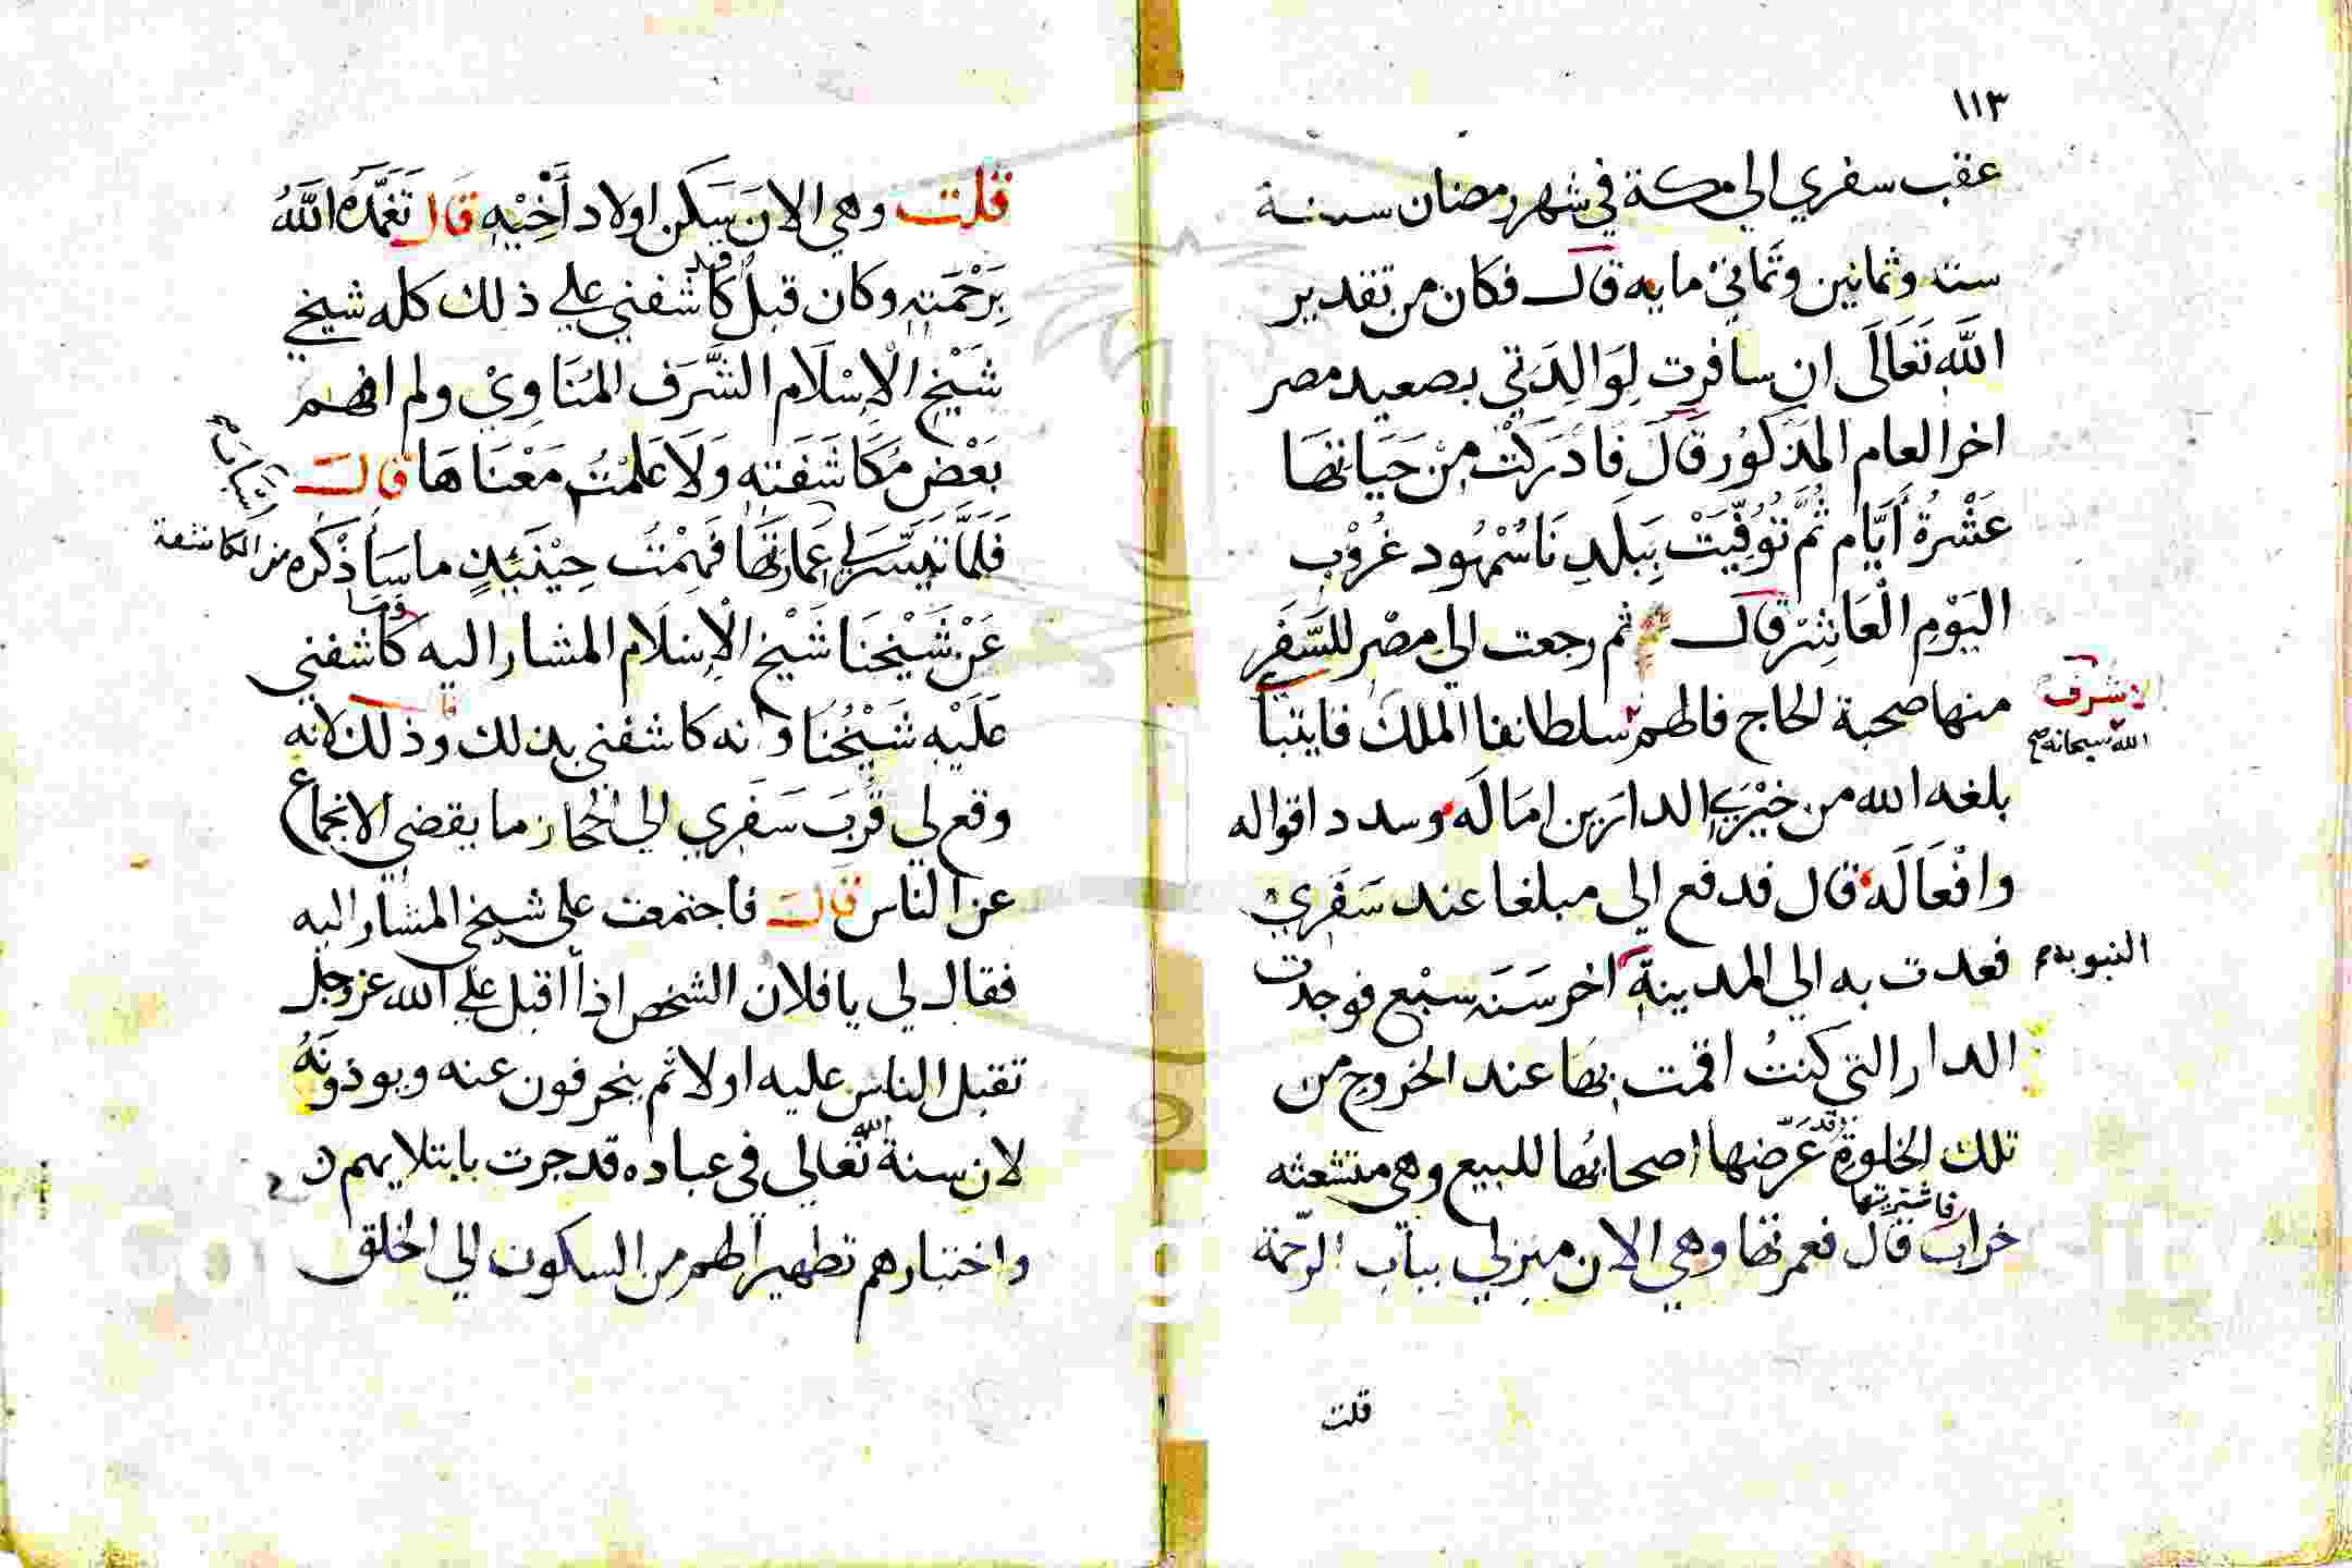 ١١٣
عقب سفري الي مكة في شهر رمضان سنة
ستة وثمانين وثماني مايه قال فكان من تقدير
اللَّهِ تَعَالَى ان سافرت لِوَالِدَتي بصعيد مصر
اخر العام المَذكُور قَالَ فَادَرَكْتُ مِنْ حَيَاتِهَا
عَشْرةُ أيَّام ثُمَّ تُوُفِّيَتْ بِبَلَدِ نَا سُمْهُود غُرُوْبِ
اليَوْمِ الْعَاشِرْ قال ثم رجعت الي مصْر للسَّفَر
منها صحبة الحاج فالهم سلطاننا الملك قايتبا
الاشرف
الله سبحانه صح
بلغه الله من خَيْرَيِ الدارين امَالَه وسدد اقواله
وافْعَالَه قال فدفع الي مبلغا عند سَفَرِيْ
فعدت به الي المدينة اخر سَنَة سبْع فوجدت
النبويه
الدار التي كنتُ اقمت بهَا عند الخروج من
تلك الخلوة وقد عَرَّضها اصحابُها للبيع وهي متشعثه
خراب فاشتريتها قال فعمرتها وهي الان منزلي بباب الرحمة
قلت
قلت وهي الان يَسكن اولاد أَخِيْهِ قَال تَغَمَّدَهُ اللَّهُ
بِرَحْمَتِهِ وكان قبلُ كَاشفني علي ذلك كله شيخي
شَيْخ الْإِسْلَام الشَّرَف المُنَاوِيْ ولم افهم
بَعْض مُكَاشَفَتِه وَلَا عَلِمْتُ مَعْنَاهَا قال
فَلَمَّا تَيَسَّرَ لي عِمَارَتُهَا فَهِمْتُ حِيْنَئِذٍ ما سَأَذْكُره من المكاشفة
عَنْ شَيْخِنَا شَيْخ الْإِسْلَام المشار اليه كاشفني
عَلَيْهِ شَيْخُنَا وانه كاشفني بذلك وذلك لانه
وقع لي قُرْبَ سَفَرِي الي الحجاز ما يقضي الانجماع
عن الناس قال فاجتمعت علي شيخي المشار اليه
فقال لي يا فلان الشخص اذا اقبل علي الله عز وجل
تقبل الناس عليه اولا ثم ينحرفون عنه ويوذونَهُ
لان سنة الله تعالي في عباده قد جرت بابتلايهم
واختبارهم تطهيرا لهم من السكون الي الخلق